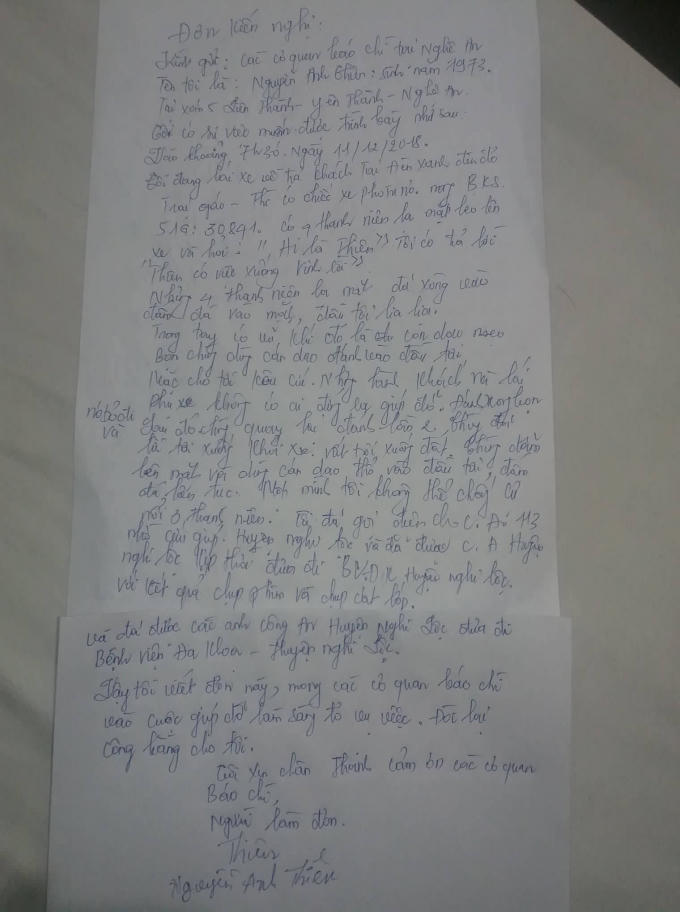 Đơn Kiến nghị:
Kính gửi: các cơ quan báo chí tại Nghệ An
Tên tôi là: Nguyễn Anh Thiên: Sinh năm 1973.
Tại xóm 5 Thành - Yên Thành - Nghệ An.
Tôi có sự việc muốn được trình bày như sau:
Vào khoảng 7h30. Ngày 11/12/2018.
Tôi đang lái xe về trả khách Tại đèn xanh đèn đỏ
Trại gáo - Thì có chiếc xe 7 BKS.
51G: 30891. Có 4 thanh niên lạ mặt leo lên
xe và hỏi: "Hi là Thiên" Tôi có trả lời
"Thiên có việc xuống Vinh lôi"
Những 4 thanh niên lạ mặt đã xông vào
đấm đá vào mặt, đầu tôi lia lịa.
Trong tay có vũ khí đó là con dao
Bọn chúng dùng cán dao đánh vào đầu tôi
Mặc cho tôi kêu cứu. Những hành khách và lái
phụ xe không có ai đứng ra giúp đỡ. Đánh xong bọn
nó bỏ đi và
sau đó chúng quay lại đánh lần 2, chúng
tôi xuống khỏi xe: vứt tôi xuống đất, chúng đấm
lên mặt và dùng cán dao thọ vào đầu tôi, đấm
đá liên tục. Một mình tôi không thể chống cự
nổi thanh niên. Tôi đã gọi điện cho C. An 113
nhờ giúp. Huyện nghi lộc và đã được C. A Huyện
nghi lộc kịp thời đưa đi BV.Đ.K Huyện nghi lộc.
với kết quả chụp phim và chụp cắt lớp.
và đã được các anh công An Huyện Nghi Lộc đưa đi
Bệnh viện Đa Khoa - Huyện nghi Lộc.
Nay tôi viết đơn này, mong các cơ quan báo chí
vào cuộc giúp đỡ làm sáng tỏ vụ việc. Đòi lại
công bằng cho tôi.
Tôi xin chân Thành cảm ơn các cơ quan
Báo chí,
Người làm đơn.
Thiên
Nguyễn Anh Thiên